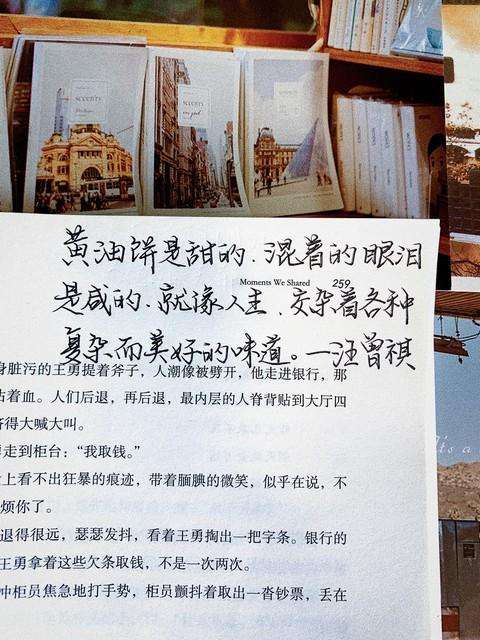 SCENTS
SCENTS
黄油饼是甜的.混着的眼泪
Moments We Shared 259
是咸的.就像人生.交杂着各种
复杂而美好的味道。—汪曾祺
身脏污的王勇提着斧子，人潮像被劈开，他走进银行，那
着血。人们后退，再后退，最内层的人脊背贴到大厅四
得大喊大叫。
走到柜台：“我取钱。”
上看不出狂暴的痕迹，带着腼腆的微笑，似乎在说，不
烦你了。
退得很远，瑟瑟发抖，看着王勇掏出一把字条。银行的
王勇拿着这些欠条取钱，不是一次两次。
冲柜员焦急地打手势，柜员颤抖着取出一沓钞票，丢在
It's a